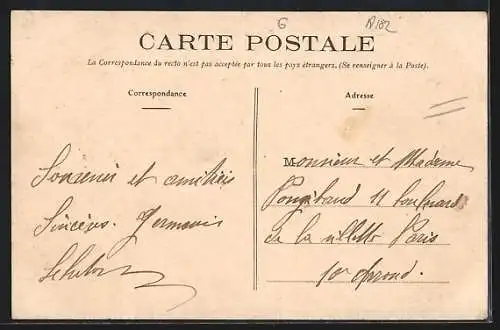 G
CARTE POSTALE
La Correspondance du recto n'est pas acceptée par tous les pays étrangers. (Se renseigner à la Poste).
Correspondance
Adresse
Souvenir et amitiés
Sincères. Germanis
Monsieur et Madame
11 boulevard
de la villette Paris
10e Arrond.